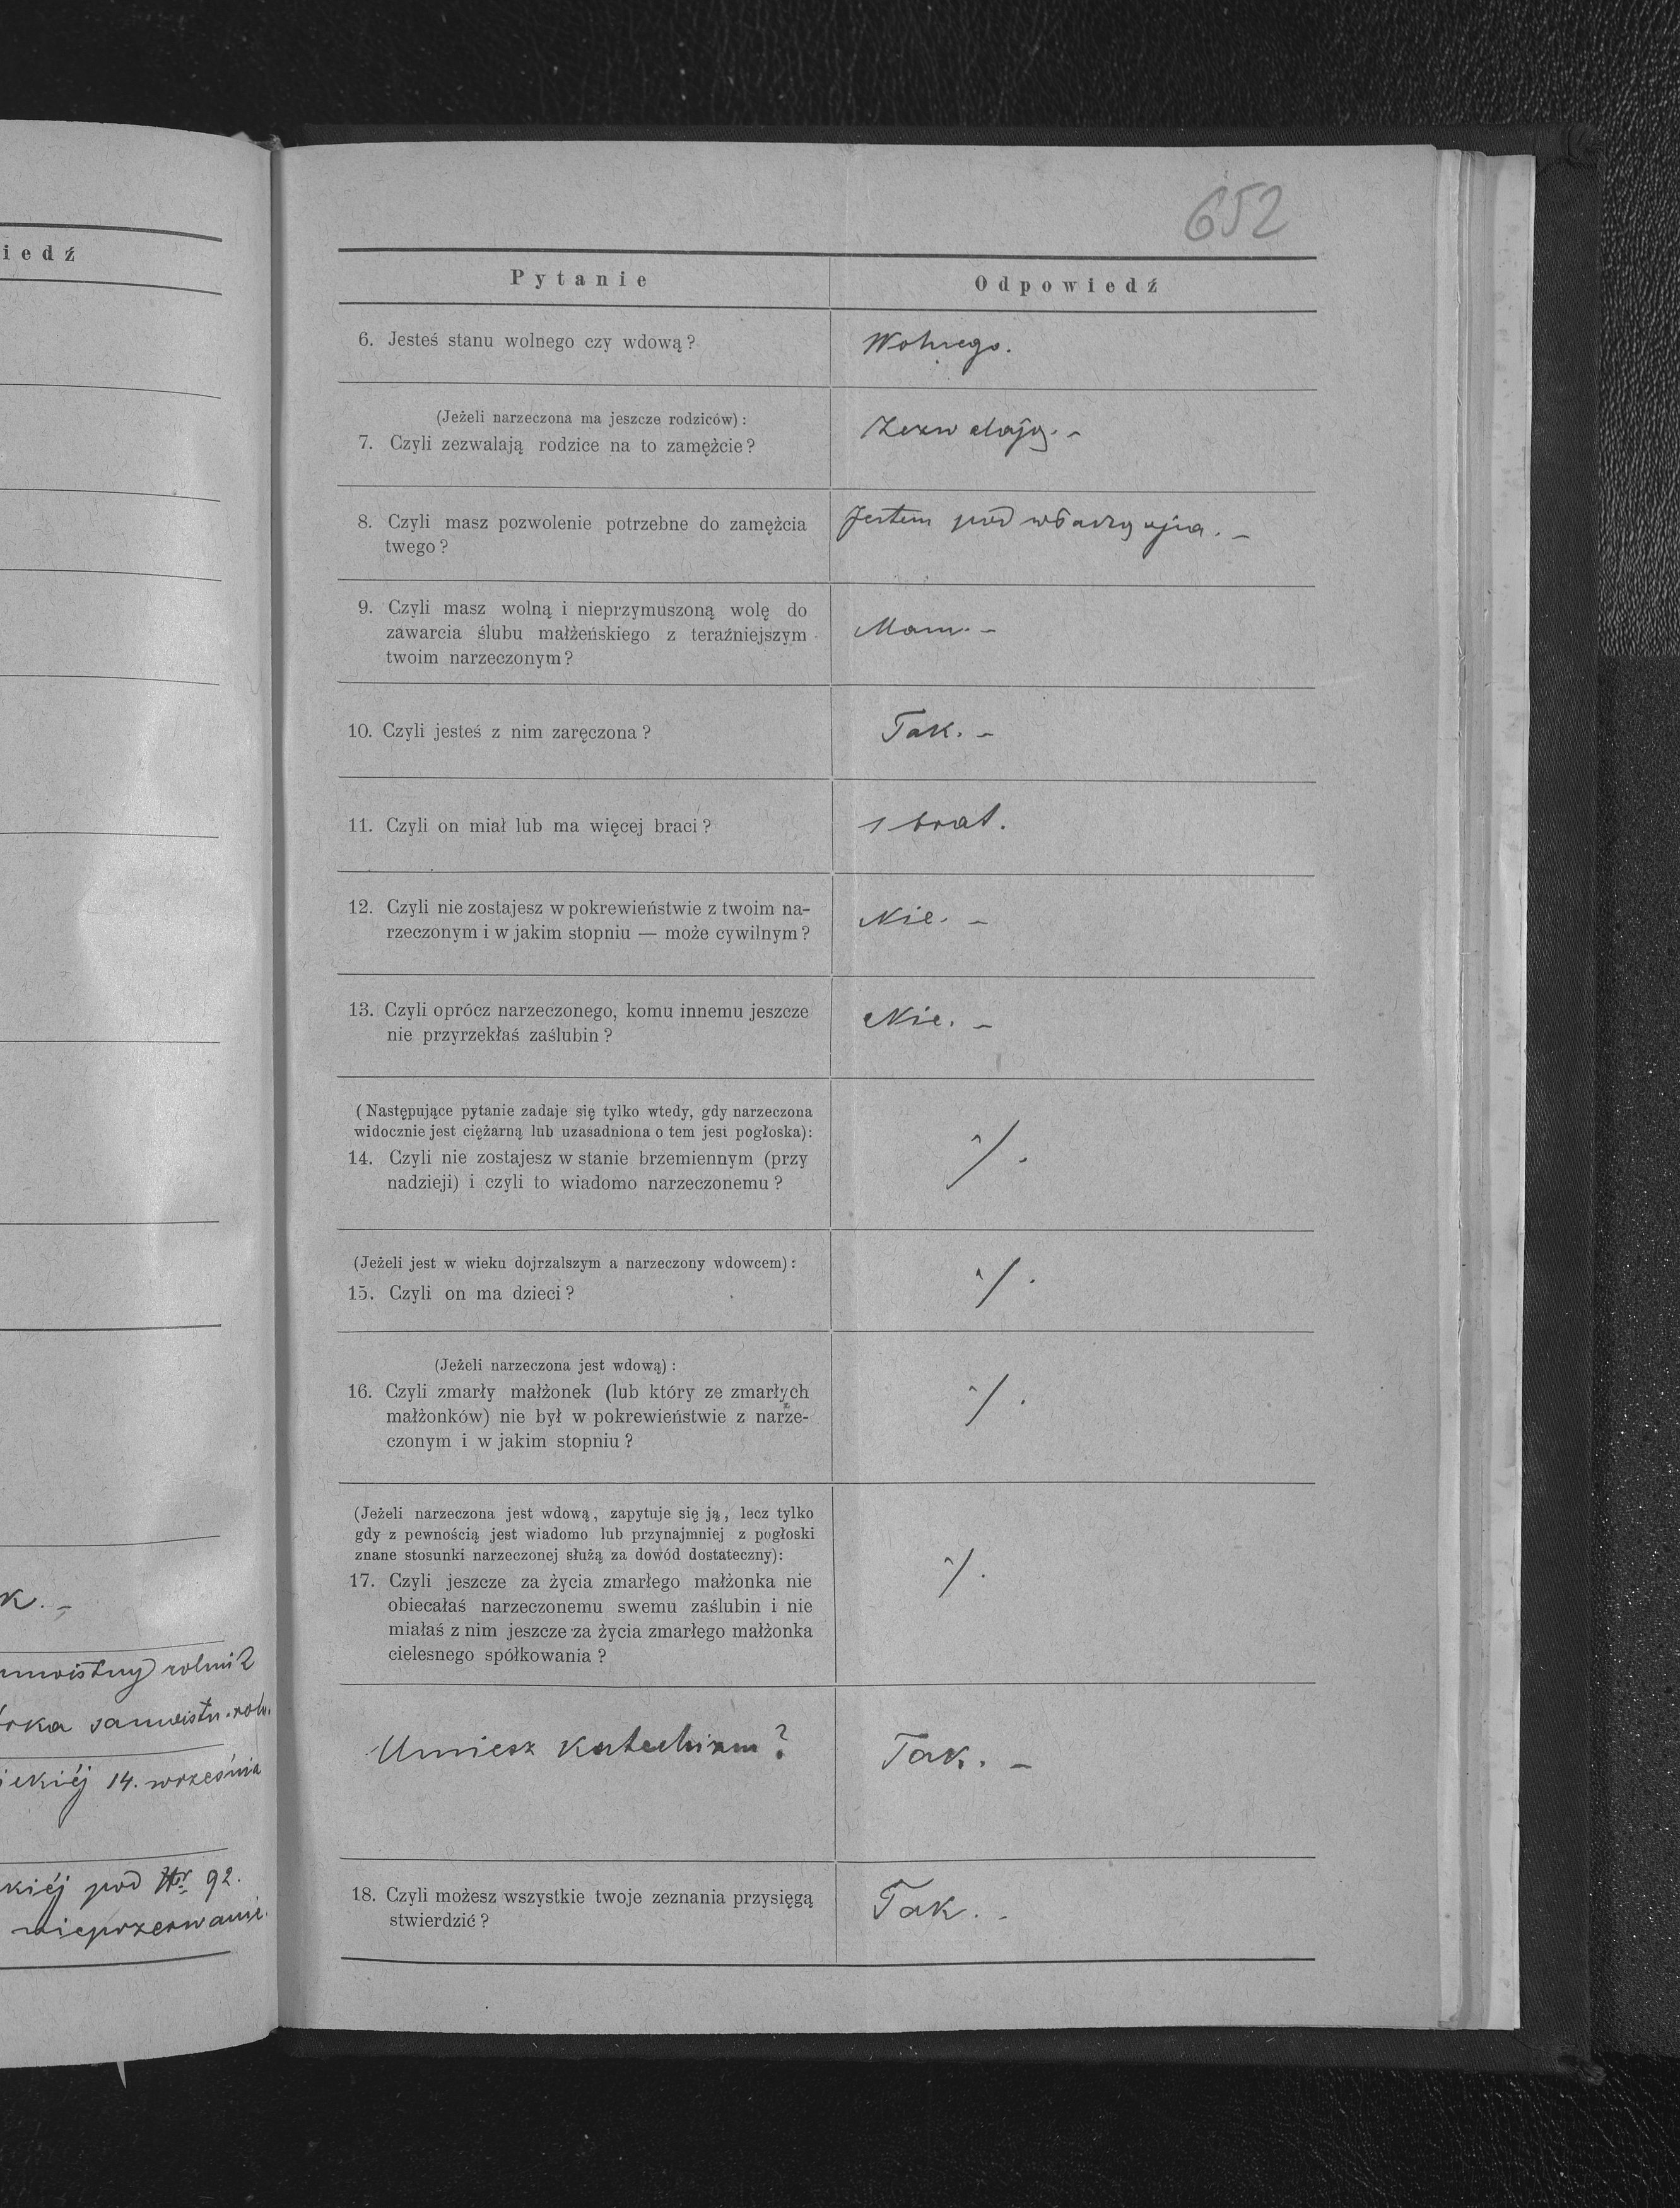 iedź
k. –
rolnik
samoistn. roln.
14. września
pod Nr 92.
nieprzerwanie.
652
Pytanie
Odpowiedź
6. Jesteś stanu wolnego czy wdową?
Wolnego.
(Jeżeli narzeczona ma jeszcze rodziców):
7. Czyli zezwalają rodzice na to zamężcie?
Zezwalają. –
8. Czyli masz pozwolenie potrzebne do zamężcia
twego?
Jestem pod władzą ojca. –
9. Czyli masz wolną i nieprzymuszoną wolę do
zawarcia ślubu małżeńskiego z teraźniejszym
twoim narzeczonym?
Mam. –
10. Czyli jesteś z nim zaręczona?
Tak. –
11. Czyli on miał lub ma więcej braci?
1 brat.
12. Czyli nie zostajesz w pokrewieństwie z twoim na-
rzeczonym i w jakim stopniu — może cywilnym?
Nie. –
13. Czyli oprócz narzeczonego, komu innemu jeszcze
nie przyrzekłaś zaślubin?
Nie. –
(Następujące pytanie zadaje się tylko wtedy, gdy narzeczona
widocznie jest ciężarną lub uzasadniona o tem jest pogłoska):
14. Czyli nie zostajesz w stanie brzemiennym (przy
nadzieji) i czyli to wiadomo narzeczonemu?
·/.
(Jeżeli jest w wieku dojrzalszym a narzeczony wdowcem):
15. Czyli on ma dzieci?
·/.
(Jeżeli narzeczona jest wdową):
16. Czyli zmarły małżonek (lub który ze zmarłych
małżonków) nie był w pokrewieństwie z narze-
czonym i w jakim stopniu?
·/.
(Jeżeli narzeczona jest wdową, zapytuje się ją, lecz tylko
gdy z pewnością jest wiadomo lub przynajmniej z pogłoski
znane stosunki narzeczonej służą za dowód dostateczny):
17. Czyli jeszcze za życia zmarłego małżonka nie
obiecałaś narzeczonemu swemu zaślubin i nie
miałaś z nim jeszcze za życia zmarłego małżonka
cielesnego spółkowania?
·/.
Umiesz katechizm?
Tak. –
18. Czyli możesz wszystkie twoje zeznania przysięgą
stwierdzić?
Tak. –